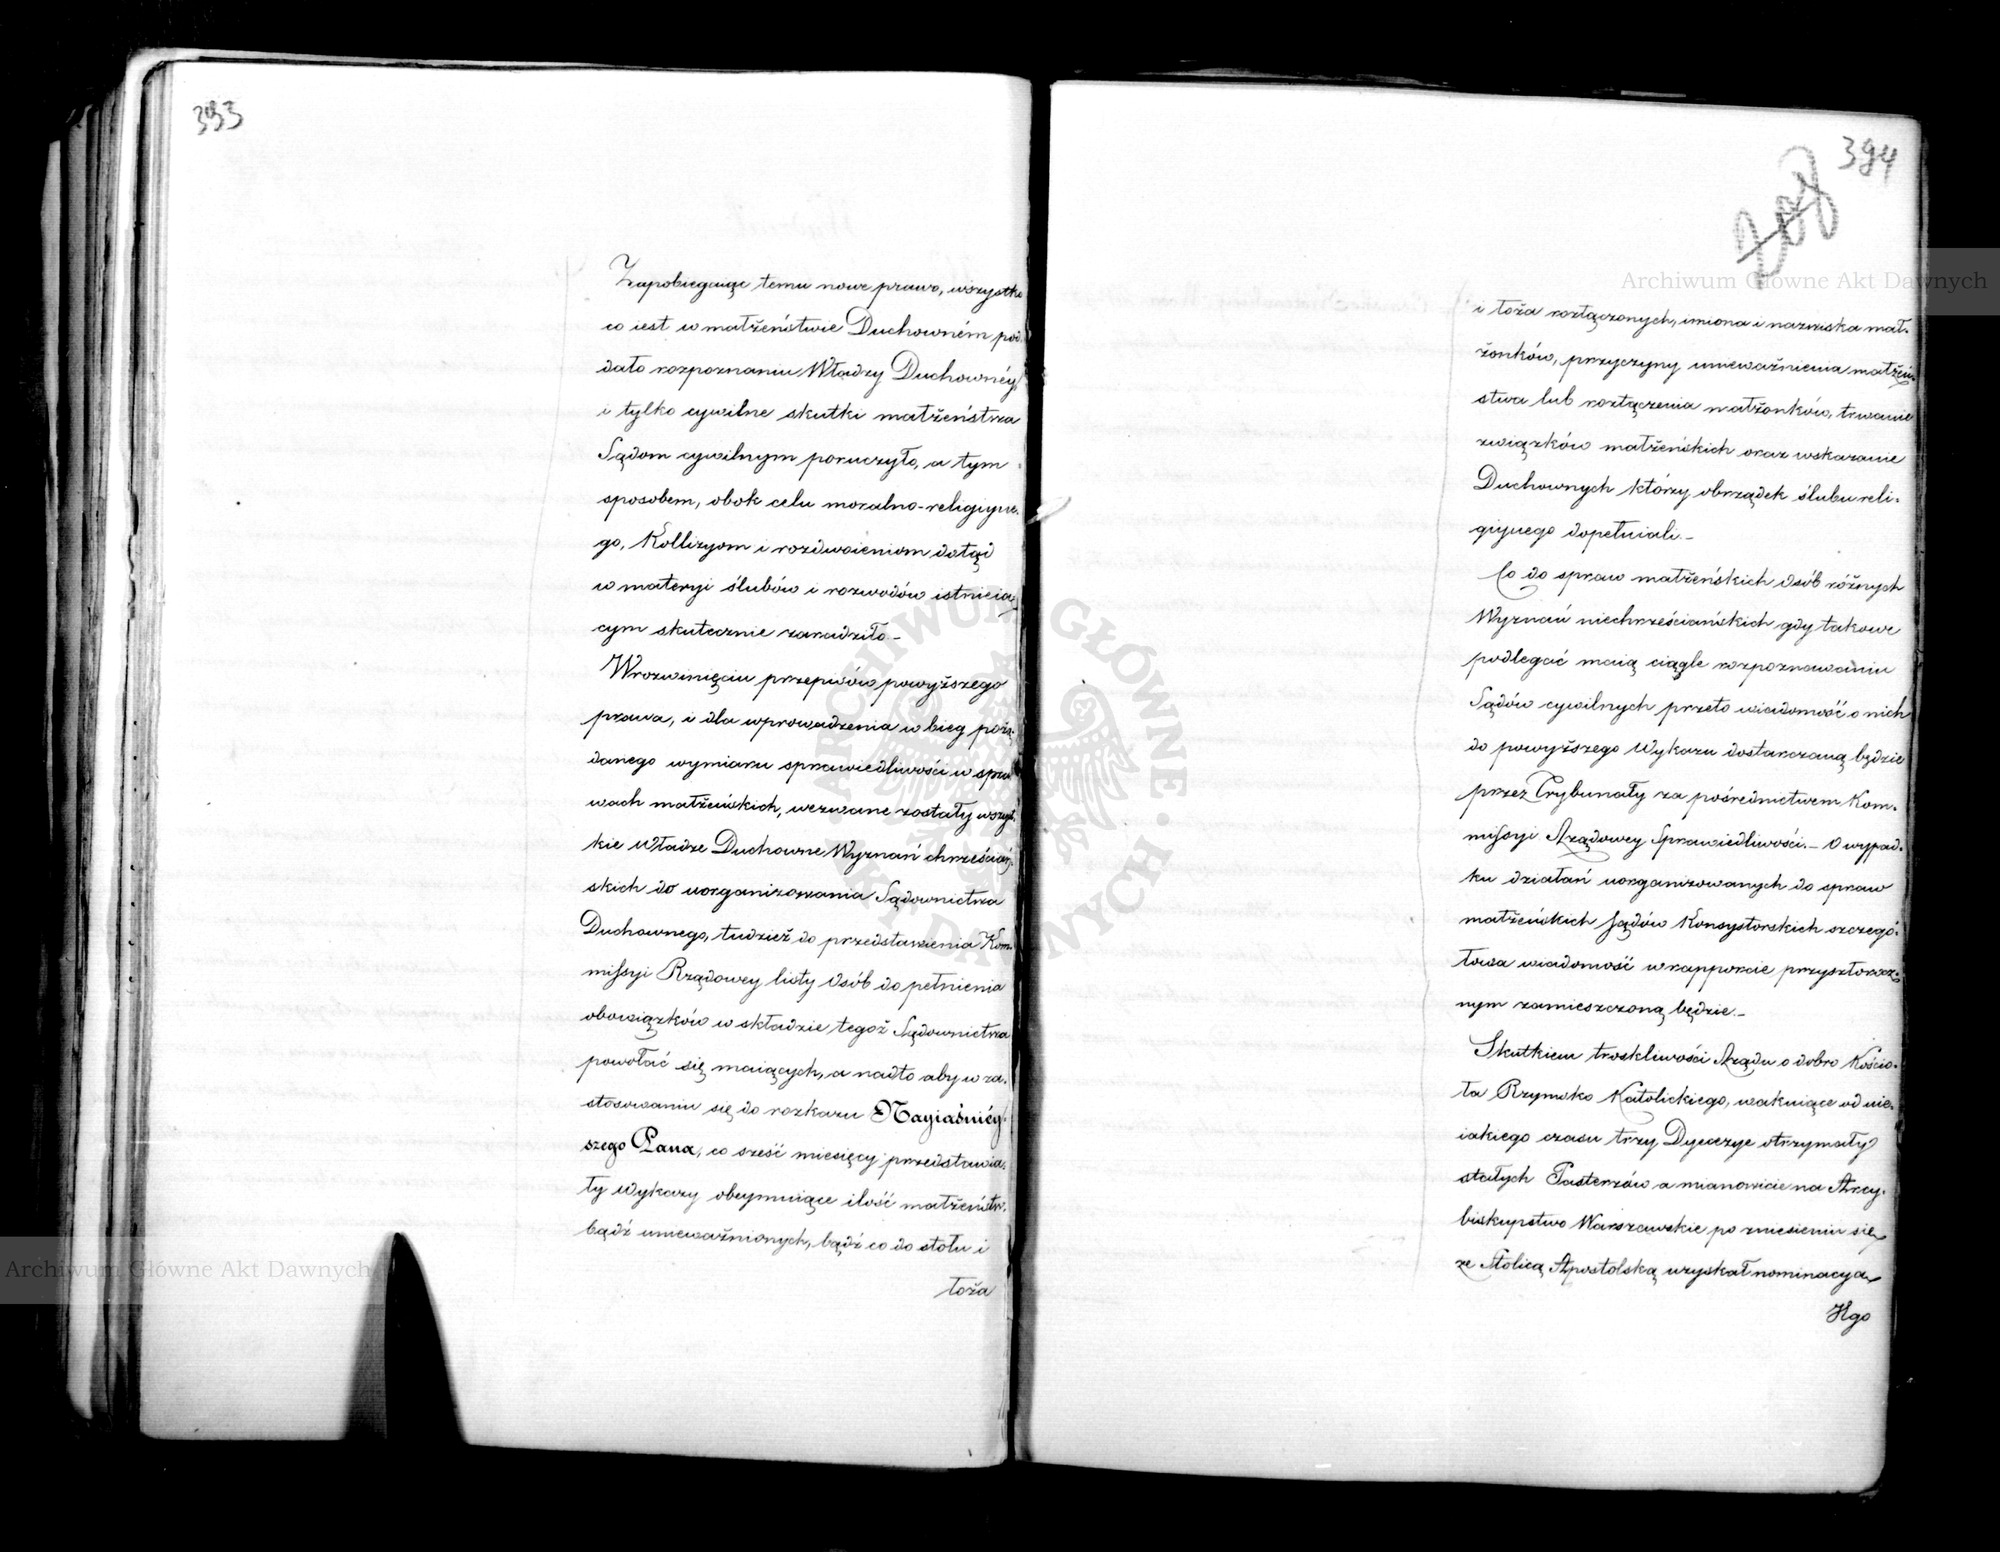 393
Zapobiegaiąc temu nowe prawo, wszystko
co iest w małżeństwie Duchowném pod,
dało rozpoznaniu Władzy Duchownéy
i tylko cywilne skutki małżeństwa
Sądom cywilnym poruczyło, a tym
sposobem, obok celu moralno-religiyne.
go, Kollizyom i rozdwoieniom dotąd
w materyi ślubów i rozwodów istnieią,
cym skutecznie zaradziło.-
W rozwinięciu przepisów powyższego
prawa, i dla wprowadzenia w bieg pożą,
danego wymiaru sprawiedliwości w spra
wach małżeńskich, wezwane zostały wszyst,
kie Władze Duchowne Wyznań chrześciań,
skich do uorganizowania Sądownictwa
Duchownego, tudzież do przedstawienia Kom,
missyi Rządowey listy osób do pełnienia
obowiązków w składzie tegoż Sądownictwa
powołać się maiących, a nadto aby w za,
stosowaniu się do rozkazu Nayiaśniéy,
szego Pana, co sześć miesięcy przedstawia,
ły wykazy obeymuiące ilość małżeństw,
bądź unieważnionych, bądź co do stołu i
łoża
394
208
i łoża rozłączonych, imiona i nazwiska mał,
żonków, przyczyny unieważnienia małżeń,
stwa lub rozłączenia małżonków, trwanie
związków małżeńskich oraz wskazanie
Duchownych którzy obrządek ślubu reli,
giynego dopełniali.-
Co do spraw małżeńskich osób różnych
Wyznań niechrześciańskich gdy takowe
podlegać maią ciągle rozpoznawaniu
Sądów cywilnych przeto wiadomość o nich
do powyższego Wykazu dostarczaną będzie
przez Trybunały za pośrednictwem Kom,
missyi Rządowey Sprawiedliwości.- O wypad,
ku działań uorganizowanych do spraw
małżeńskich Sądów Konsystorskich szczegó,
łowa wiadomość w rapporcie przyszłorocz,
nym zamieszczoną będzie.-
Skutkiem troskliwości Rządu o dobro Kościo,
ła Rzymsko Katolickiego, wakuiące od nie,
iakiego czasu trzy Dyecezye otrzymały
stałych Pasterzów a mianowicie na Arcy,
biskupstwo Warszawskie po zniesieniu się
ze Stolicą Apostolską uzyskał nominacyą
Xgo
Archiwum Główne Akt Dawnych
Archiwum Główne Akt Dawnych
ARCHIWUM GŁÓWNE · AKT DAWNYCH ·